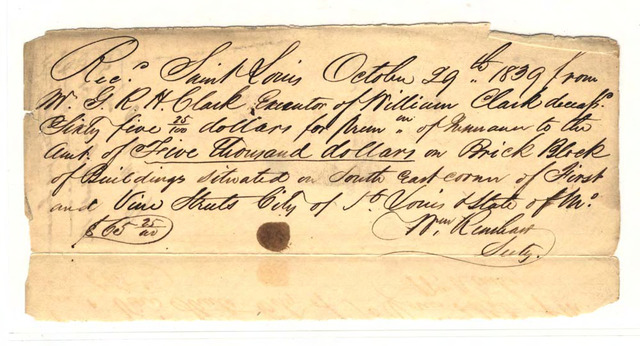 Recd. Saint Louis October 29th 1839 from
Mr. G. R. H. Clark Executor of William Clark decasd.
Sixty five 25/100 dollars for Prem'm of Insurance to the
Amt. of Five thousand dollars on Brick Block
of Buildings situated on South East corner of First
and Vine Streets City of St. Louis & State of Mo.
$65 25/00 Wm
Secty.